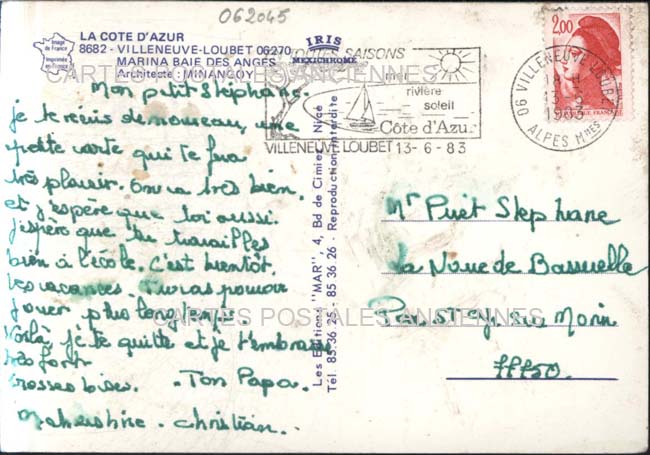 062045
LA COTE D'AZUR
8682 - VILLENEUVE-LOUBET 06270
MARINA BAIE DES ANGES
Architecte : MINANGOY
Image de France
Imprimée en France
IRIS
MEXICHROME
TOUTES SAISONS
mer
rivière
soleil
Côte d'Azur
VILLENEUVE LOUBET 13-6-83
2,00
06 VILLENEUVE LOUBET
18 H
13-6
1983
ALPES MMES
CARTES POSTALES ANCIENNES
Mon petit Stéphane.
je t'écris de nouveau, une
petite carte qui te fera
très plaisir. On va très bien,
et j'espère que toi aussi.
j'espère que tu travailles
bien à l'école. C'est bientôt
les vacances. Tu vas pouvoir
jouer plus longtemps.
Voilà, je te quitte et je t'embrasse
très fort
Grosses bises. - Ton Papa.
Christian.
Les Editions "MAR", 4, Bd de Cimiez, Nice
Tél. 85 36 25 - 85 36 26 - Reproduction interdite
Mr Puit Stéphane
La Noue de Bassevelle
Par St Cyr Sur Morin
77750.
CARTES POSTALES ANCIENNES